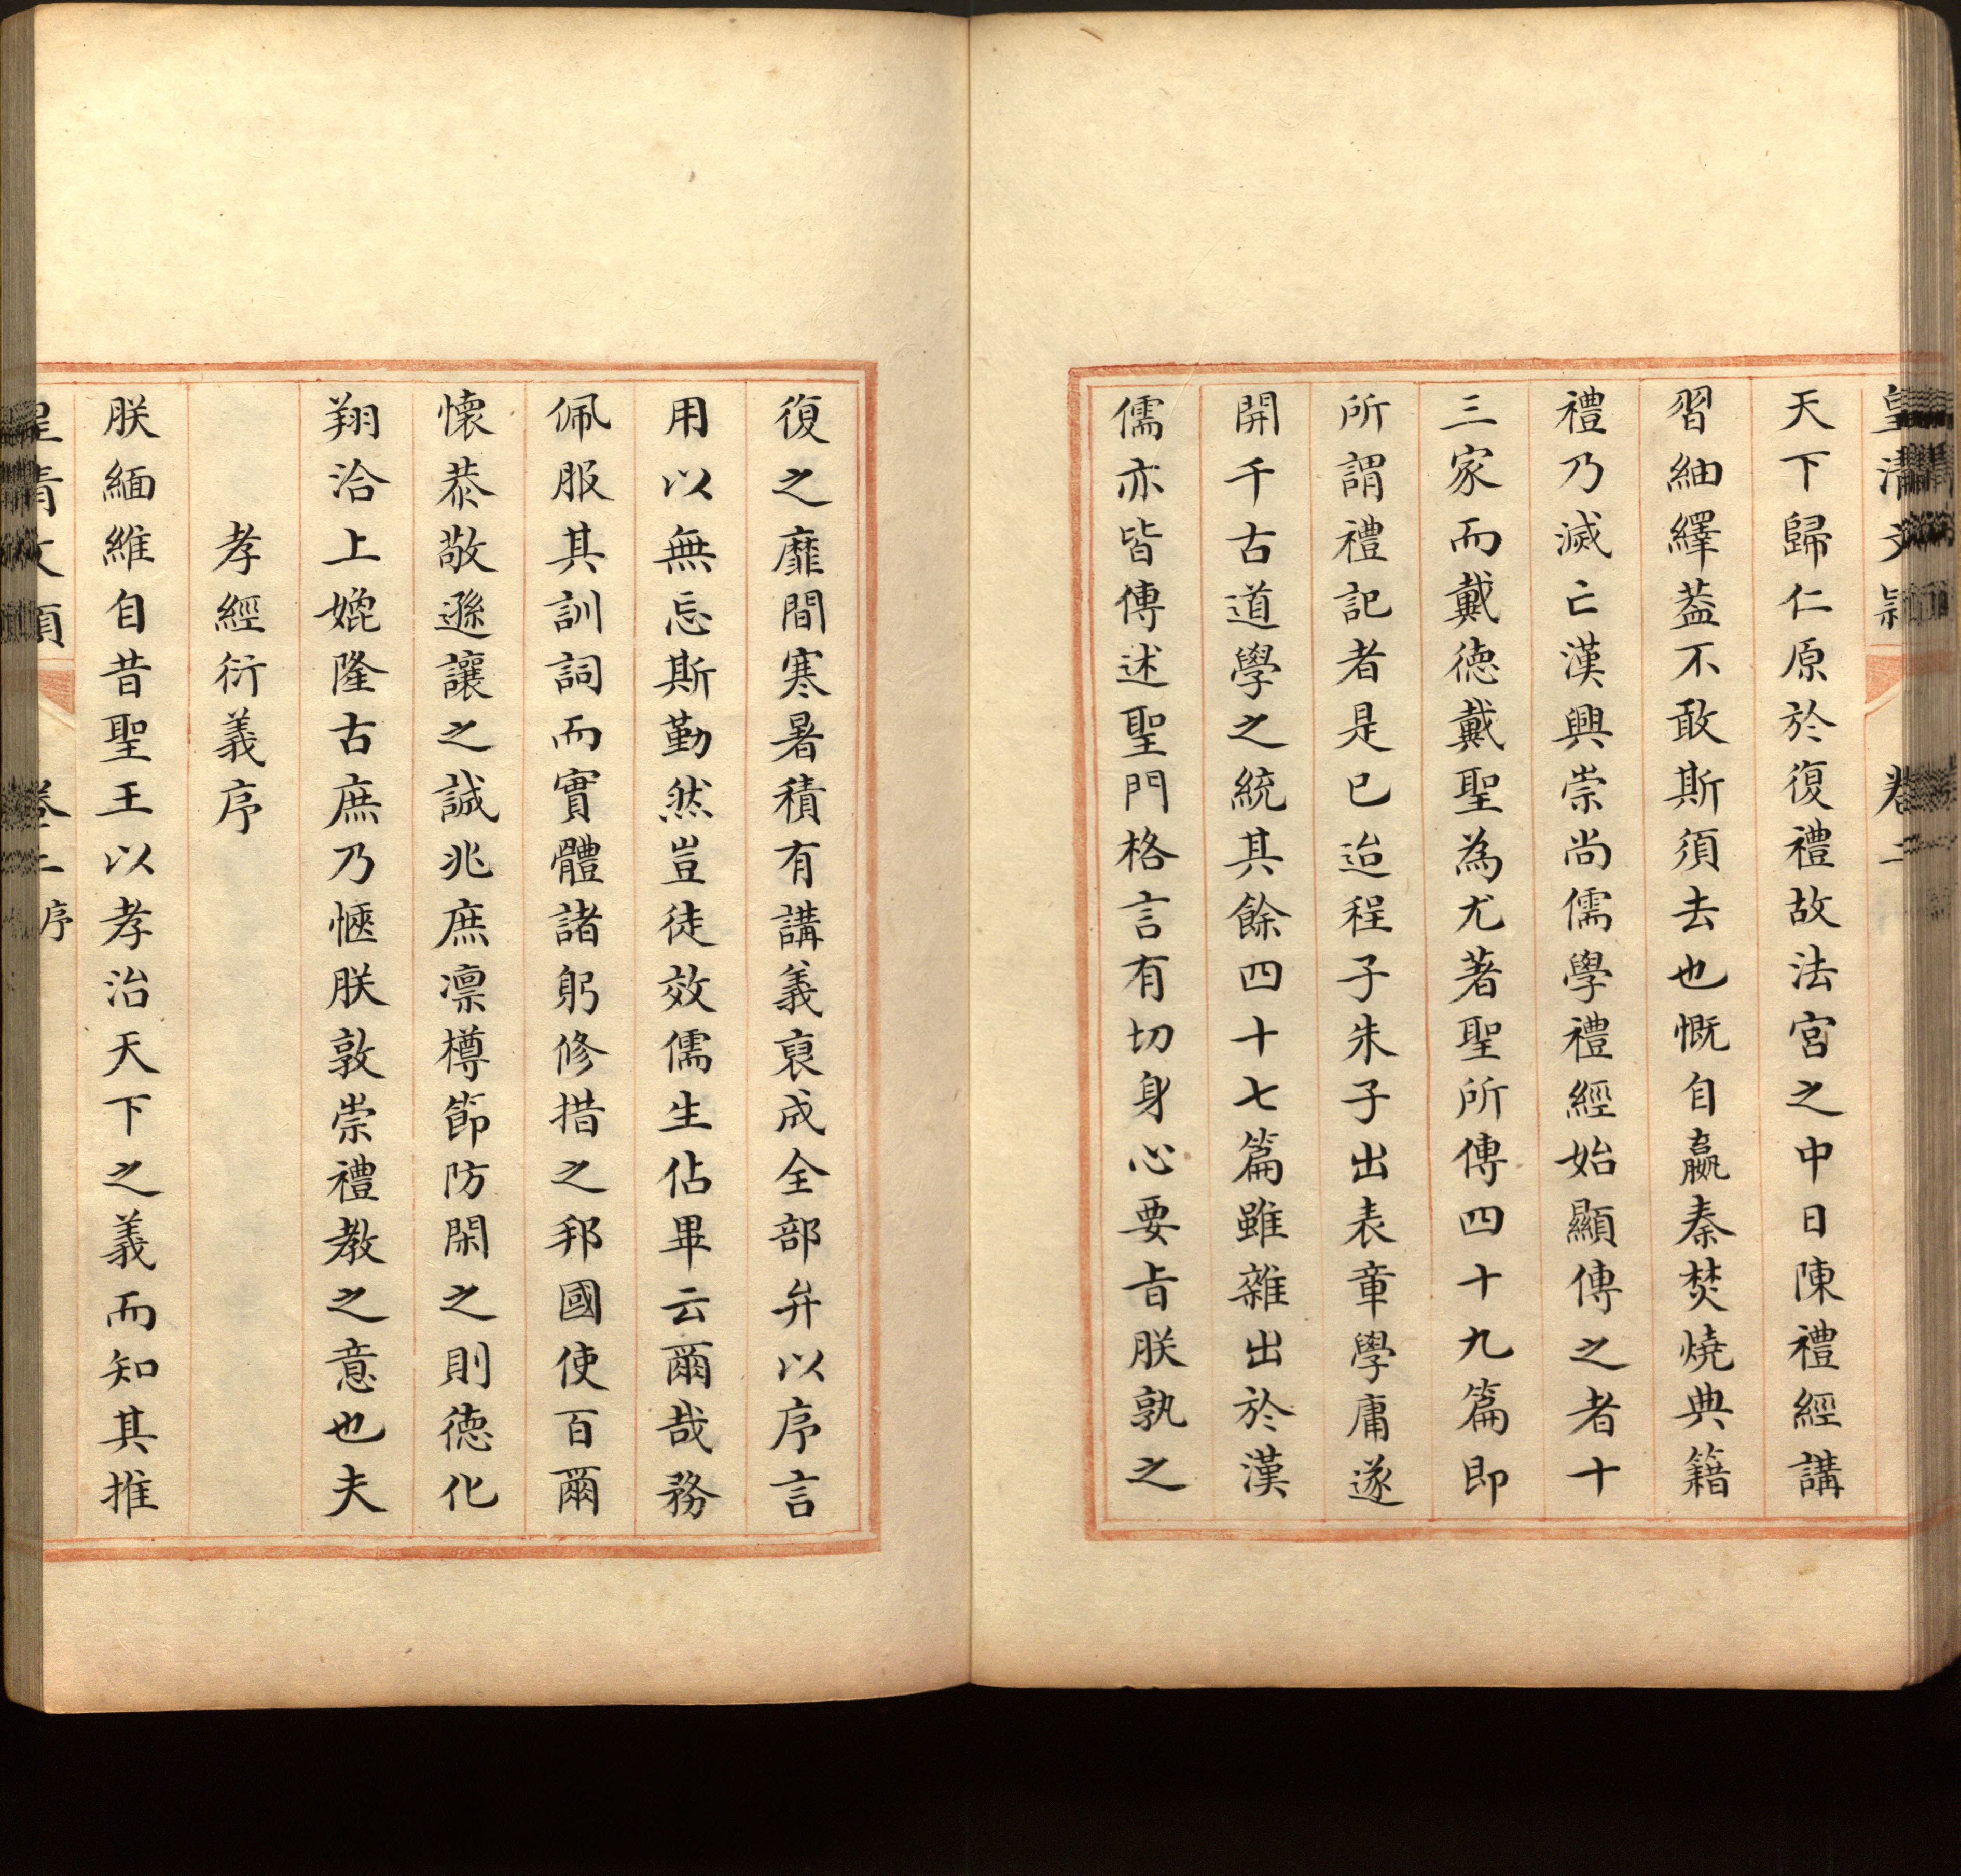 皇清文穎 卷二
天下歸仁原於復禮故法宮之中日陳禮經講
習紬繹葢不敢斯須去也慨自嬴秦焚燒典籍
禮乃滅亡漢興崇尚儒學禮經始顯傳之者十
三家而戴德戴聖為尤著聖所傳四十九篇即
所謂禮記者是已迨程子朱子出表章學庸遂
開千古道學之統其餘四十七篇雖雜出於漢
儒亦皆傳述聖門格言有切身心要旨朕孰之
復之靡間寒暑積有講義裒成全部弁以序言
用以無忘斯勤然豈徒效儒生佔畢云爾哉務
佩服其訓詞而實體諸躬修措之邦國使百爾
懷恭敬遜讓之誠兆庶凛樽節防閑之則德化
翔洽上媲隆古庶乃愜朕敦崇禮教之意也夫
孝經衍義序
朕緬維自昔聖王以孝治天下之義而知其推
皇清文穎 卷二 序